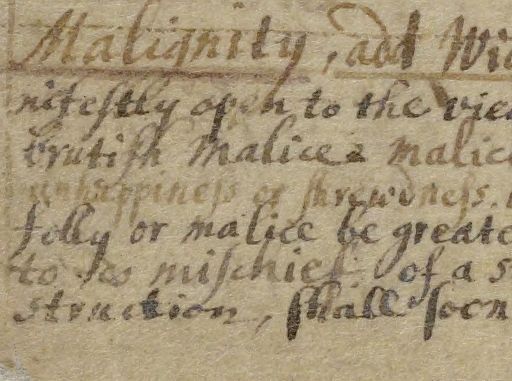 Malignity, add Wic
nifestly open to the vie
brutish Malice: malic
unhappiness or shrewdness.
folly or malice be greate
to do mischief of a s
struction, shall soon